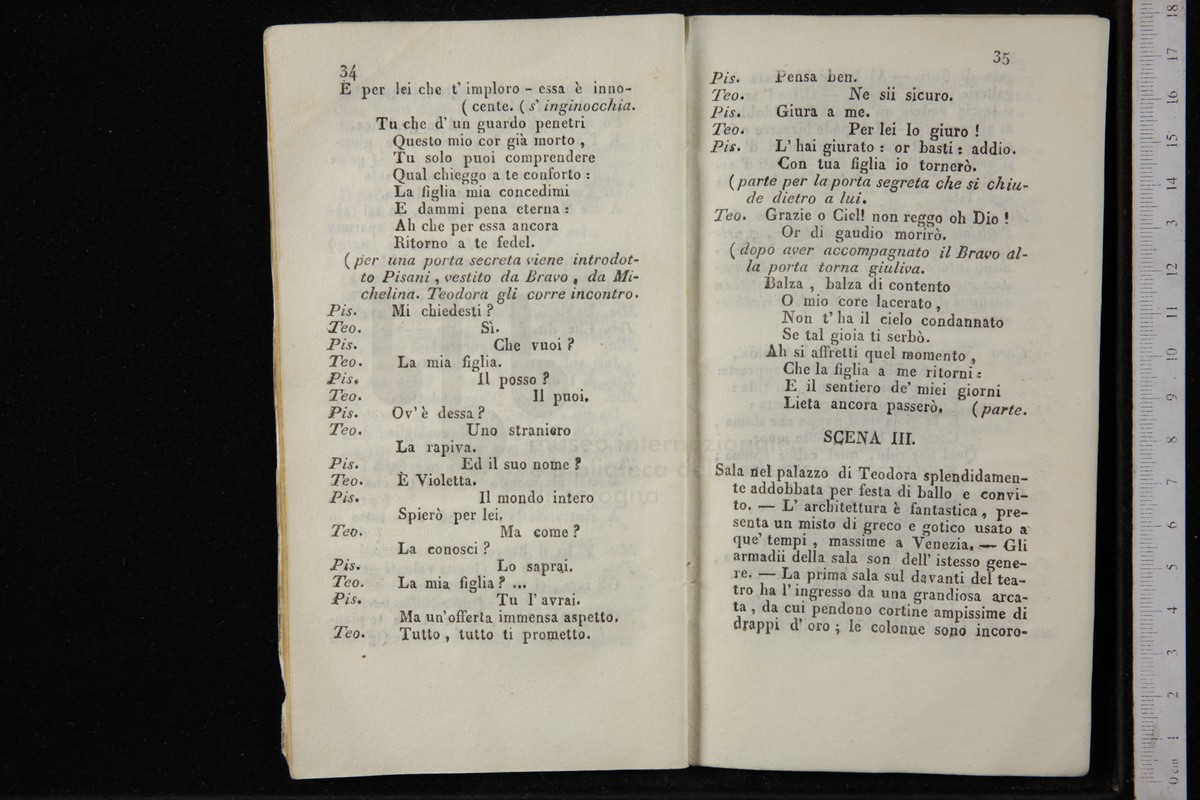 34
È per lei che t' imploro - essa è inno-
( cente. ( s' inginocchia.
Tu che d' un guardo penetri
Questo mio cor già morto ,
Tu solo puoi comprendere
Qual chieggo a te conforto :
La figlia mia concedimi
E dammi pena eterna :
Ah che per essa ancora
Ritorno a te fedel.
( per una porta secreta viene introdot-
to Pisani , vestito da Bravo , da Mi-
chelina. Teodora gli corre incontro.
Pis. Mi chiedesti ?
Teo. Sì.
Pis. Che vuoi ?
Teo. La mia figlia.
Pis. Il posso ?
Teo. Il puoi.
Pis. Ov' è dessa ?
Teo. Uno straniero
La rapiva.
Pis. Ed il suo nome ?
Teo. È Violetta.
Pis. Il mondo intero
Spierò per lei.
Teo. Ma come ?
La conosci ?
Pis. Lo saprai.
Teo. La mia figlia ? ...
Pis. Tu l' avrai.
Ma un' offerta immensa aspetto.
Teo. Tutto , tutto ti prometto.
35
Pis. Pensa ben.
Teo. Ne sii sicuro.
Pis. Giura a me.
Teo. Per lei lo giuro !
Pis. L' hai giurato : or basti : addio.
Con tua figlia io tornerò.
( parte per la porta segreta che si chiu-
de dietro a lui.
Teo. Grazie o Ciel! non reggo oh Dio !
Or di gaudio morirò.
( dopo aver accompagnato il Bravo al-
la porta torna giuliva.
Balza , balza di contento
O mio core lacerato ,
Non t' ha il cielo condannato
Se tal gioia ti serbò.
Ah si affretti quel momento ,
Che la figlia a me ritorni :
E il sentiero de' miei giorni
Lieta ancora passerò. ( parte.
SCENA III.
Sala nel palazzo di Teodora splendidamen-
te addobbata per festa di ballo e convi-
to. — L' architettura è fantastica , pre-
senta un misto di greco e gotico usato a
que' tempi , massime a Venezia. — Gli
armadii della sala son dell' istesso gene-
re. — La prima sala sul davanti del tea-
tro ha l' ingresso da una grandiosa arca-
ta , da cui pendono cortine ampissime di
drappi d' oro ; le colonne sono incoro-
museo internazionale
biblioteca della
0 cm 1 2 3 4 5 6 7 8 9 10 11 12 13 14 15 16 17 18